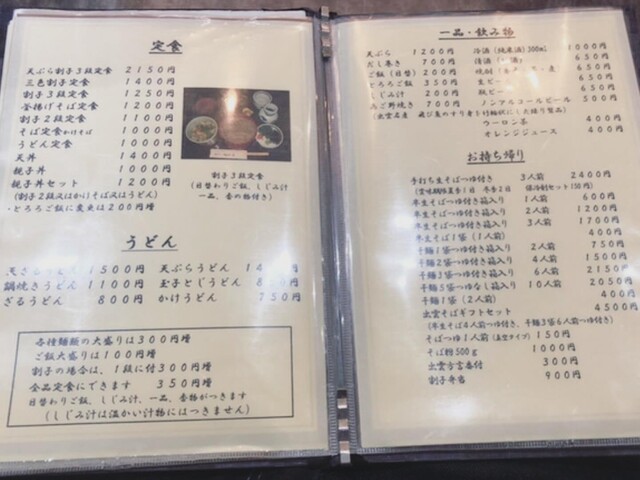 定食
天ぷら割子3段定食 2150円
三色割子定食 1400円
割子3段定食 1250円
釜揚げそば定食 1200円
割子2段定食 1100円
そば定食かけそば 1000円
うどん定食 1000円
天丼 1400円
親子丼 1000円
親子丼セット 1200円
(割子2段又はかけそば又はうどん)
・とろろご飯に変更は200円増
割子3段定食
(日替わりご飯、しじみ汁
一品、香の物付き)
うどん
天ざるうどん 1500円 天ぷらうどん
鍋焼きうどん 1100円 玉子とじうどん 850円
ざるうどん 800円 かけうどん 750円
各種麺類の大盛りは300円増
ご飯大盛りは100円増
割子の場合は、1段に付300円増
全品定食にできます 350円増
日替わりご飯、しじみ汁、一品、香物がつきます
(しじみ汁は温かい汁物にはつきません)
一品・飲み物
天ぷら 1200円 冷酒(純米酒)300ml 1000円
だし巻き 700円 清酒 650円
ご飯(日替) 200円 焼酎 650円
とろろご飯 350円 生ビール 650円
しじみ汁 200円 瓶ビール 650円
あご野焼き 700円 ノンアルコールビール 500円
(出雲名産 飛び魚のすり身を付輪状にした練り製品)
ウーロン茶 400円
オレンジジュース 400円
お持ち帰り
手打ち生そばつゆ付き 3人前 2400円
(賞味期限夏季1日 冬季2日 保冷剤セット150円)
半生そばつゆ付き箱入り 1人前 600円
半生そばつゆ付き箱入り 2人前 1200円
半生そばつゆ付き箱入り 3人前 1700円
半生そば1袋(1人前) 400円
干麺1袋つゆ付き箱入り 2人前 750円
干麺2袋つゆ付き箱入り 4人前 1500円
干麺3袋つゆ付き箱入り 6人前 2150円
干麺5袋つゆなし箱入り 10人前 2050円
干麺1袋(2人前) 400円
出雲そばギフトセット 4500円
(半生そば4人前つゆ付き、干麺3袋6人前つゆ付き)
そばつゆ1人前(真空タイプ) 150円
そば粉500g 1000円
出雲方言番付 300円
割子弁当 900円